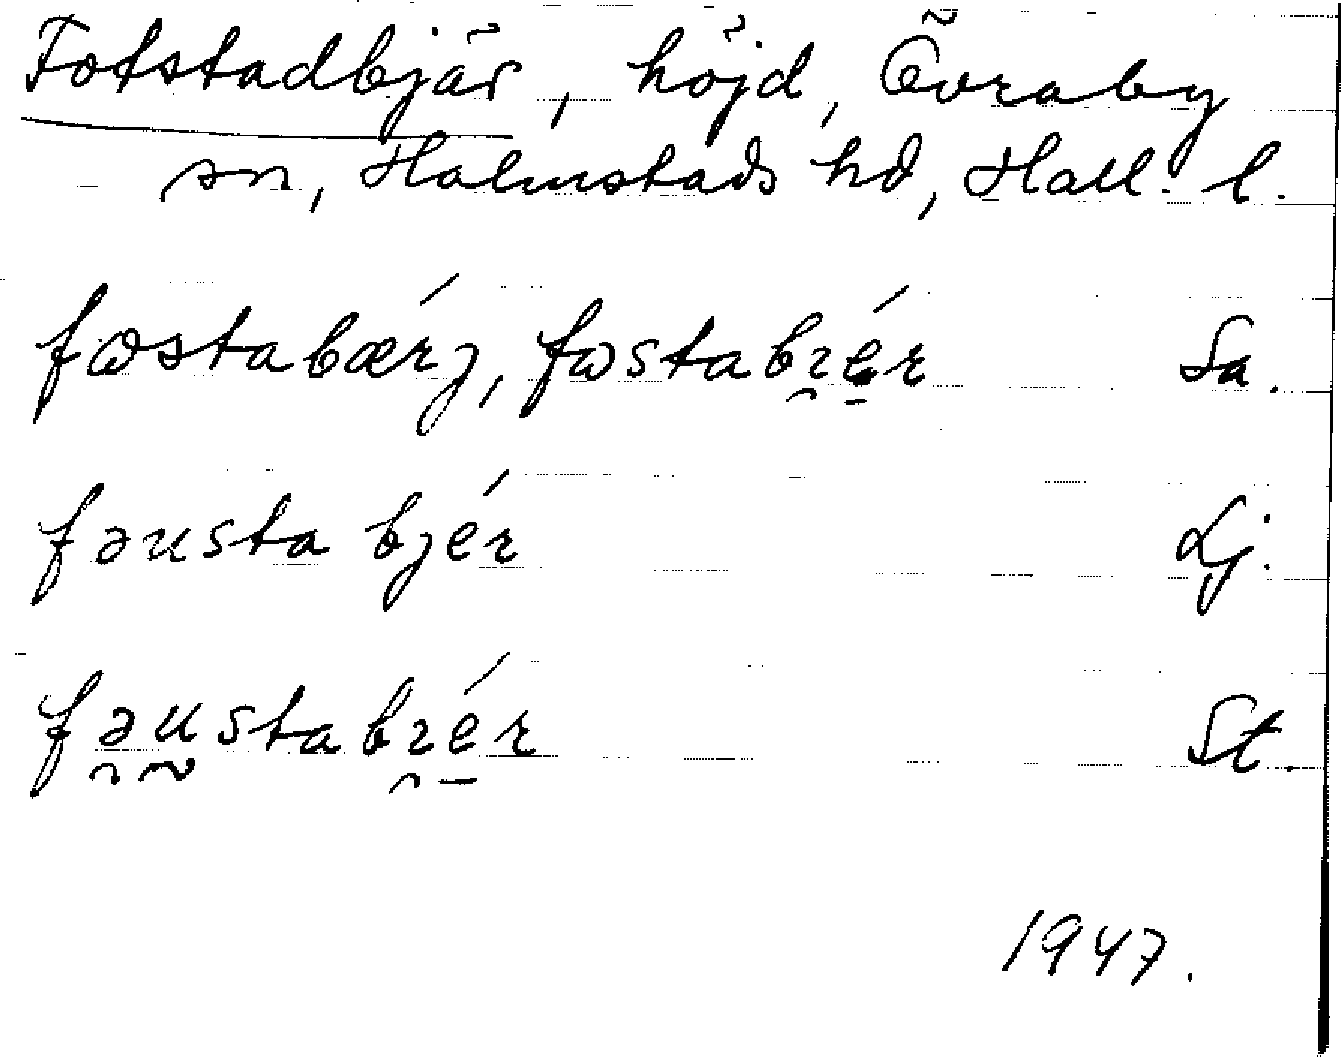 Fotstadbjär, höjd, Övraby
sn, Halmstads hd, Hall. l.
fωstabærȷ́, fωstabɿér Sa.
fəusta bjér Lj.
fəustabɿér St.
1947.